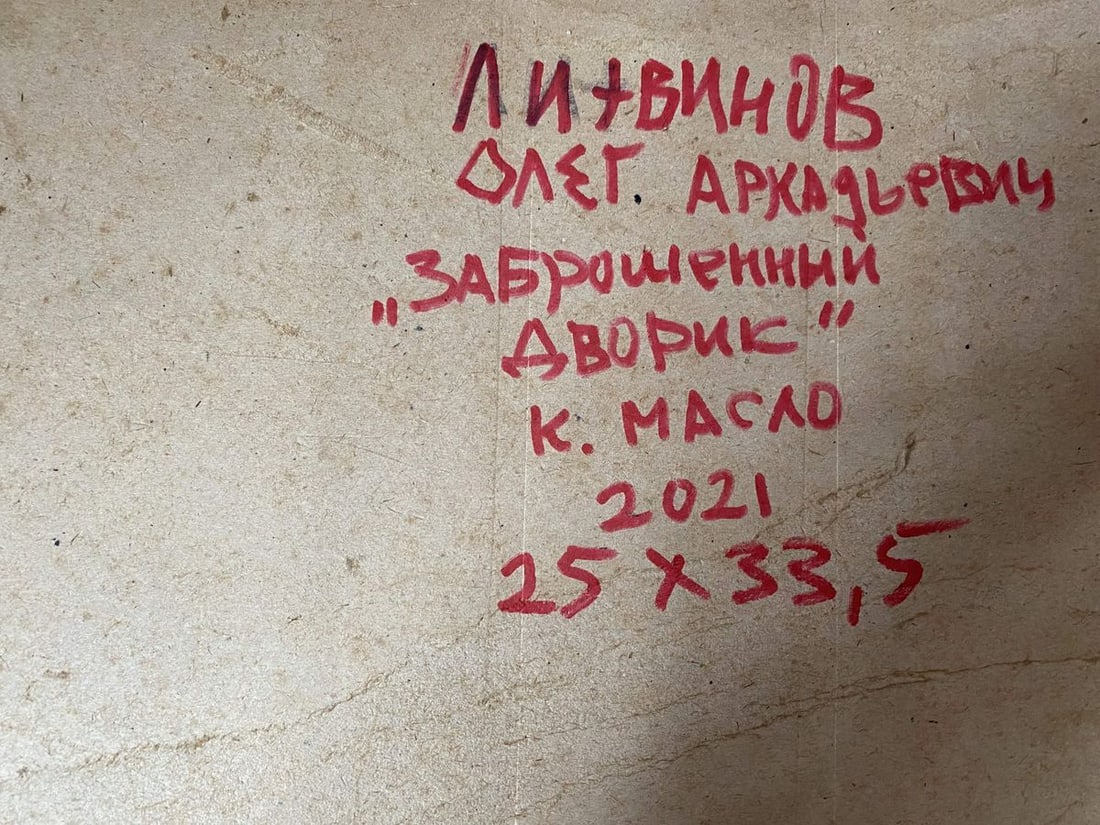 ЛИТВИНОВ
ОЛЕГ. АРКАДЬЕВИЧ
„ЗАБРОШЕННЫЙ
ДВОРИК"
К. МАСЛО
2021
25 X 33,5